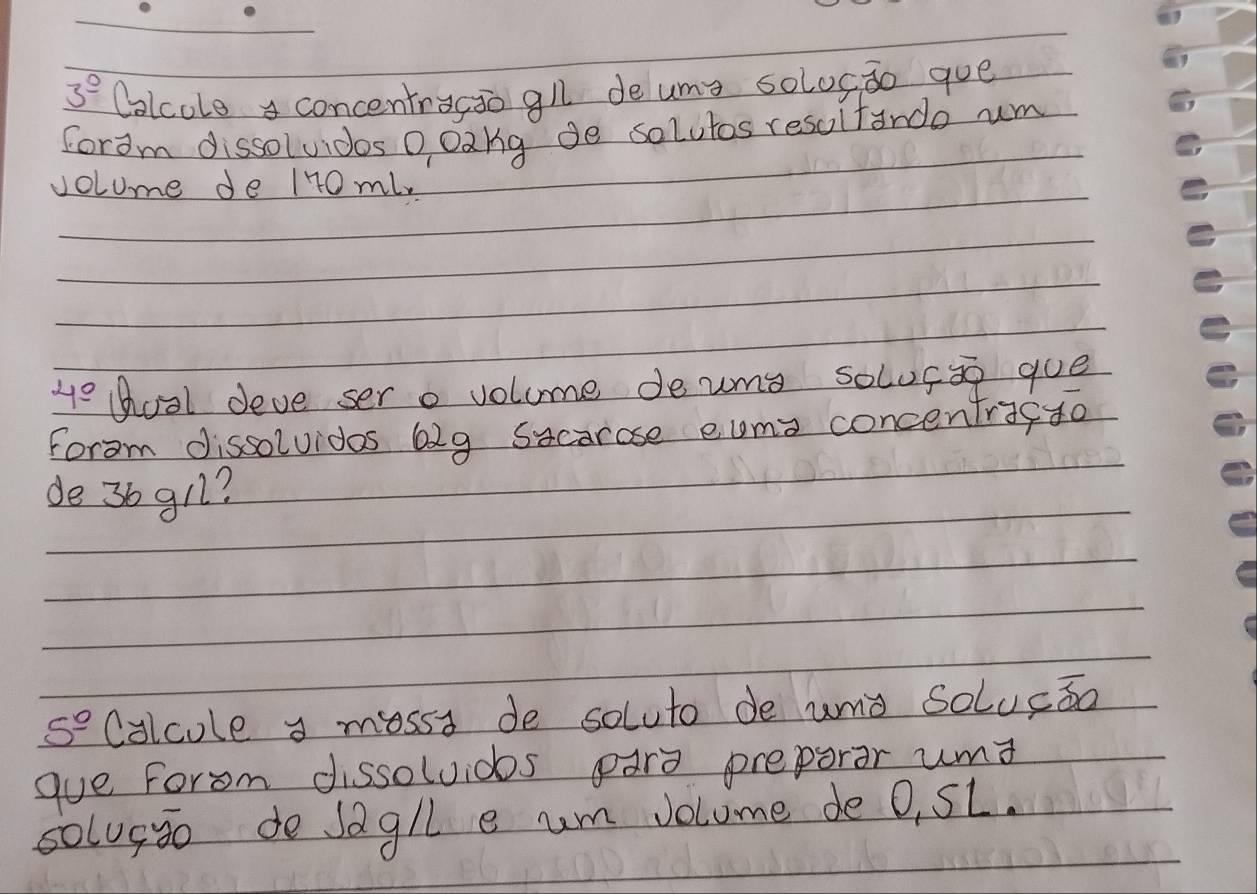 3º Calcule a concentração g/l de uma solução que
foram dissolvidos 0,02kg de solutos resultando um
volume de 170 ml.
4º Qual deve ser o volume de uma solução que
foram dissolvidos 62g sacarose e uma concentração
de 36 g/l?
5º Calcule a massa de soluto de uma solução
que foram dissolvidos para preparar uma
solução de 12g/L e um volume de 0,5L.